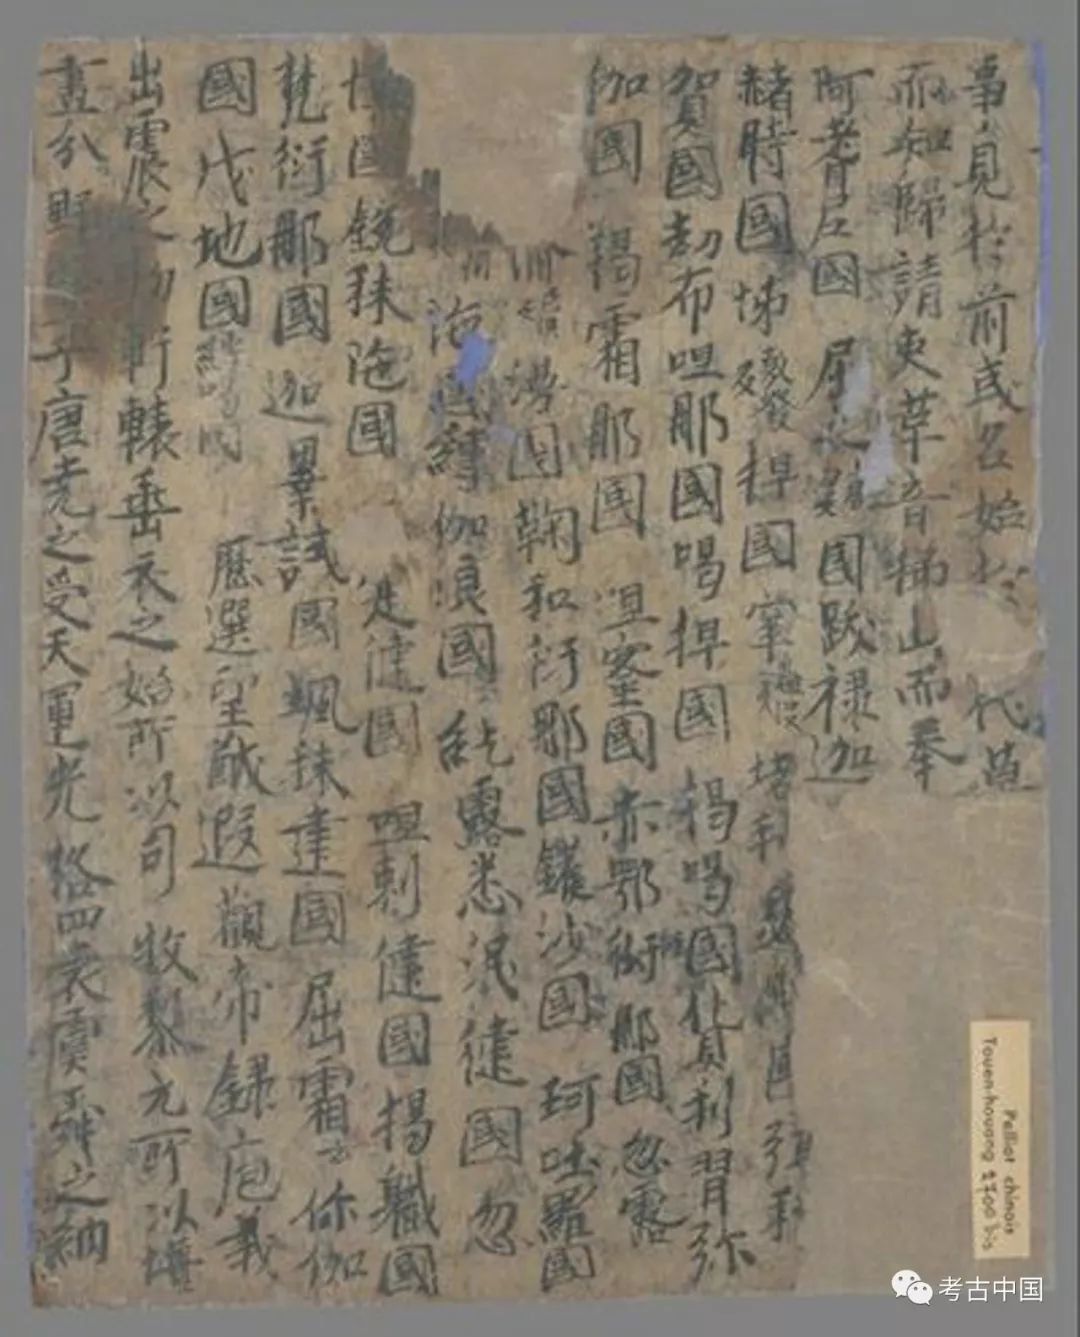 事見於前或名始於 代
而知歸請吏革音梯山而奉
阿耆尼國 屈支國跋禄迦
赭時國怖發捍國窣堵利瑟那國弭秣
賀國劫布呾那國喝捍國 捐喝國貨利習弥
伽國 羯霜那國 呾蜜國 赤鄂衍那國 忽露
漫國鞠和衍那國鑊沙國 珂咄羅國
陁國縛伽浪國 紇露悉泯健國 忽
國 銳秣陁國 寔健國 呾剌健國揭職國
梵衍那國 迦畢試國颯秣建國 屈霜你伽
國戊地國縛喝國 歷選皇猷遐觀帝録庖羲
出震之初軒轅垂衣之始所以司牧黎元所以壃
畫分野 于唐堯之受天運光格四表虞舜之納
Pelliot chinois
Touen-houang 2700 bis
考古中国